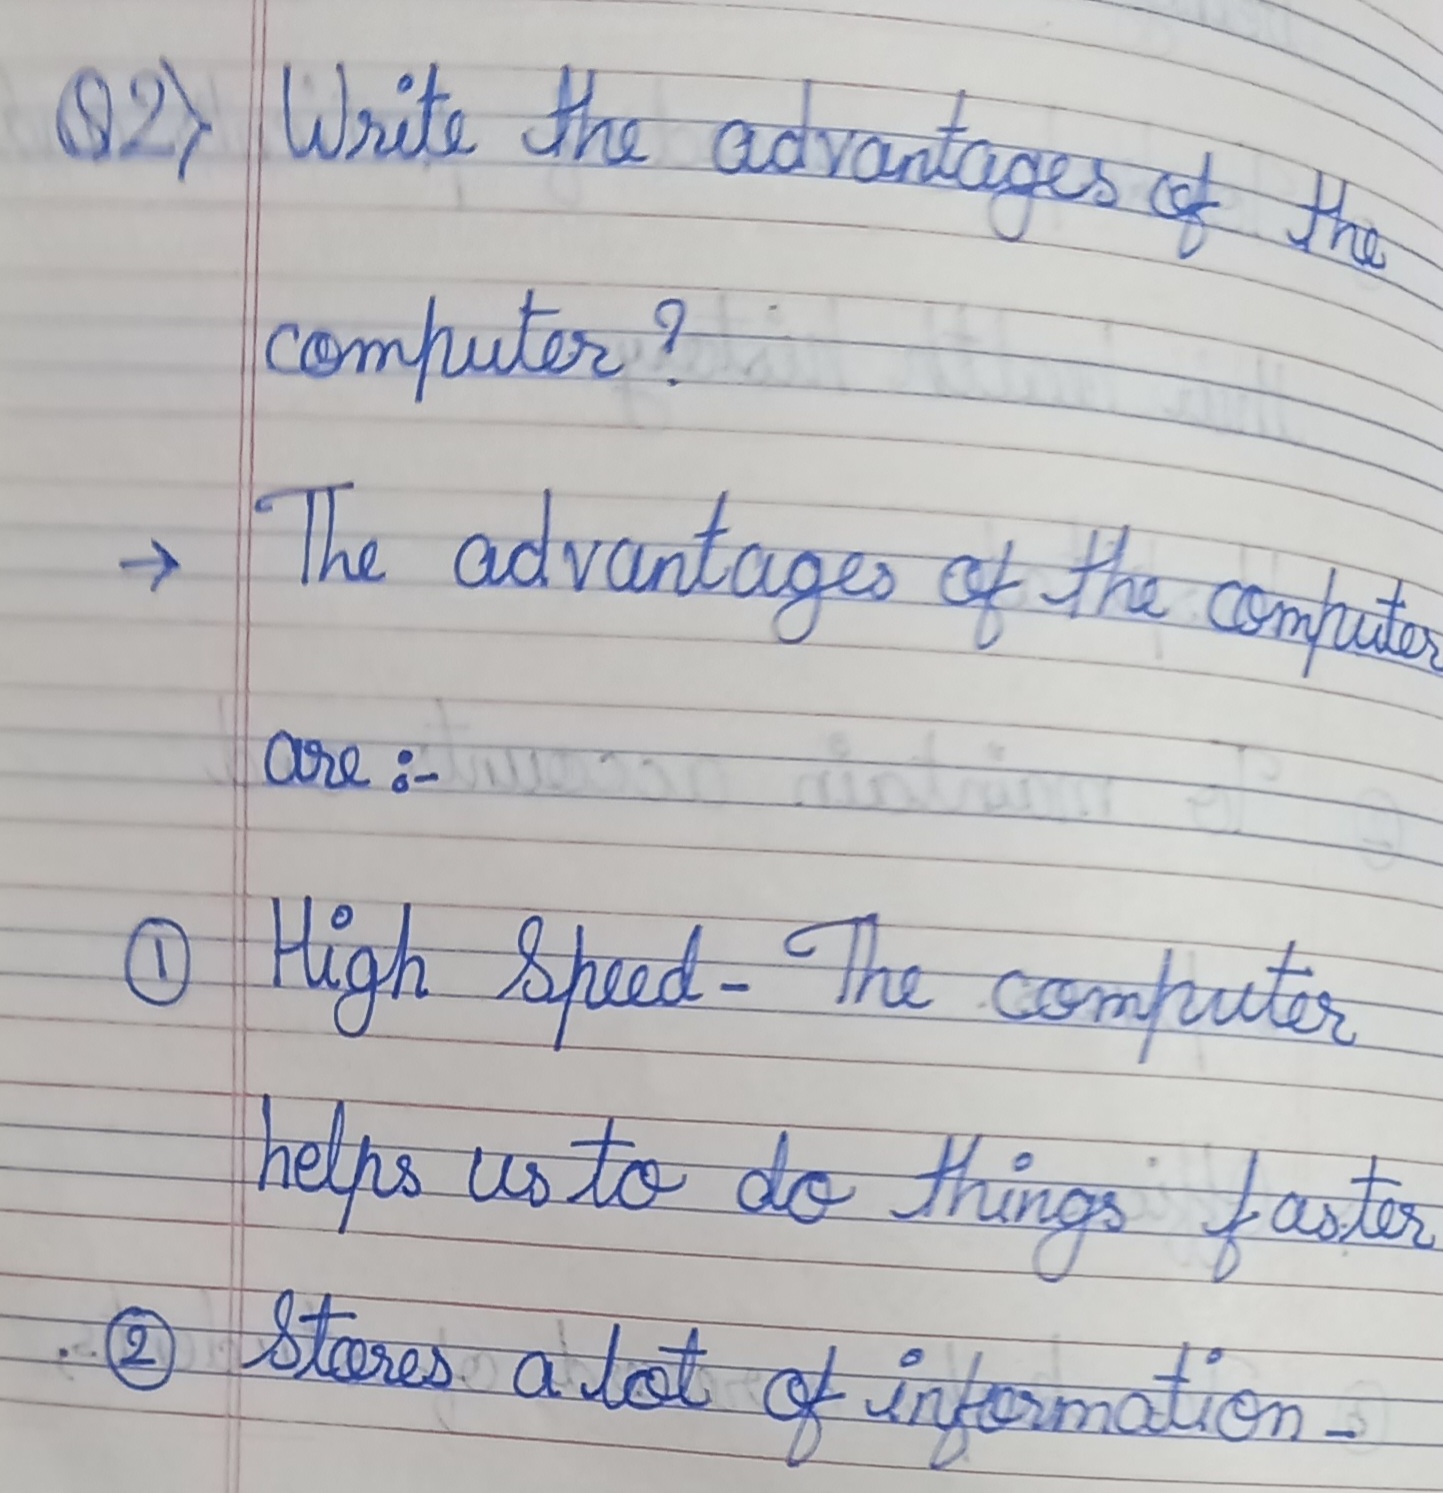 Q2) Write the advantages of the
computer?
→ The advantages of the computer
are :-
① High Speed - The computer
helps us to do things faster
② Stores a lot of information -